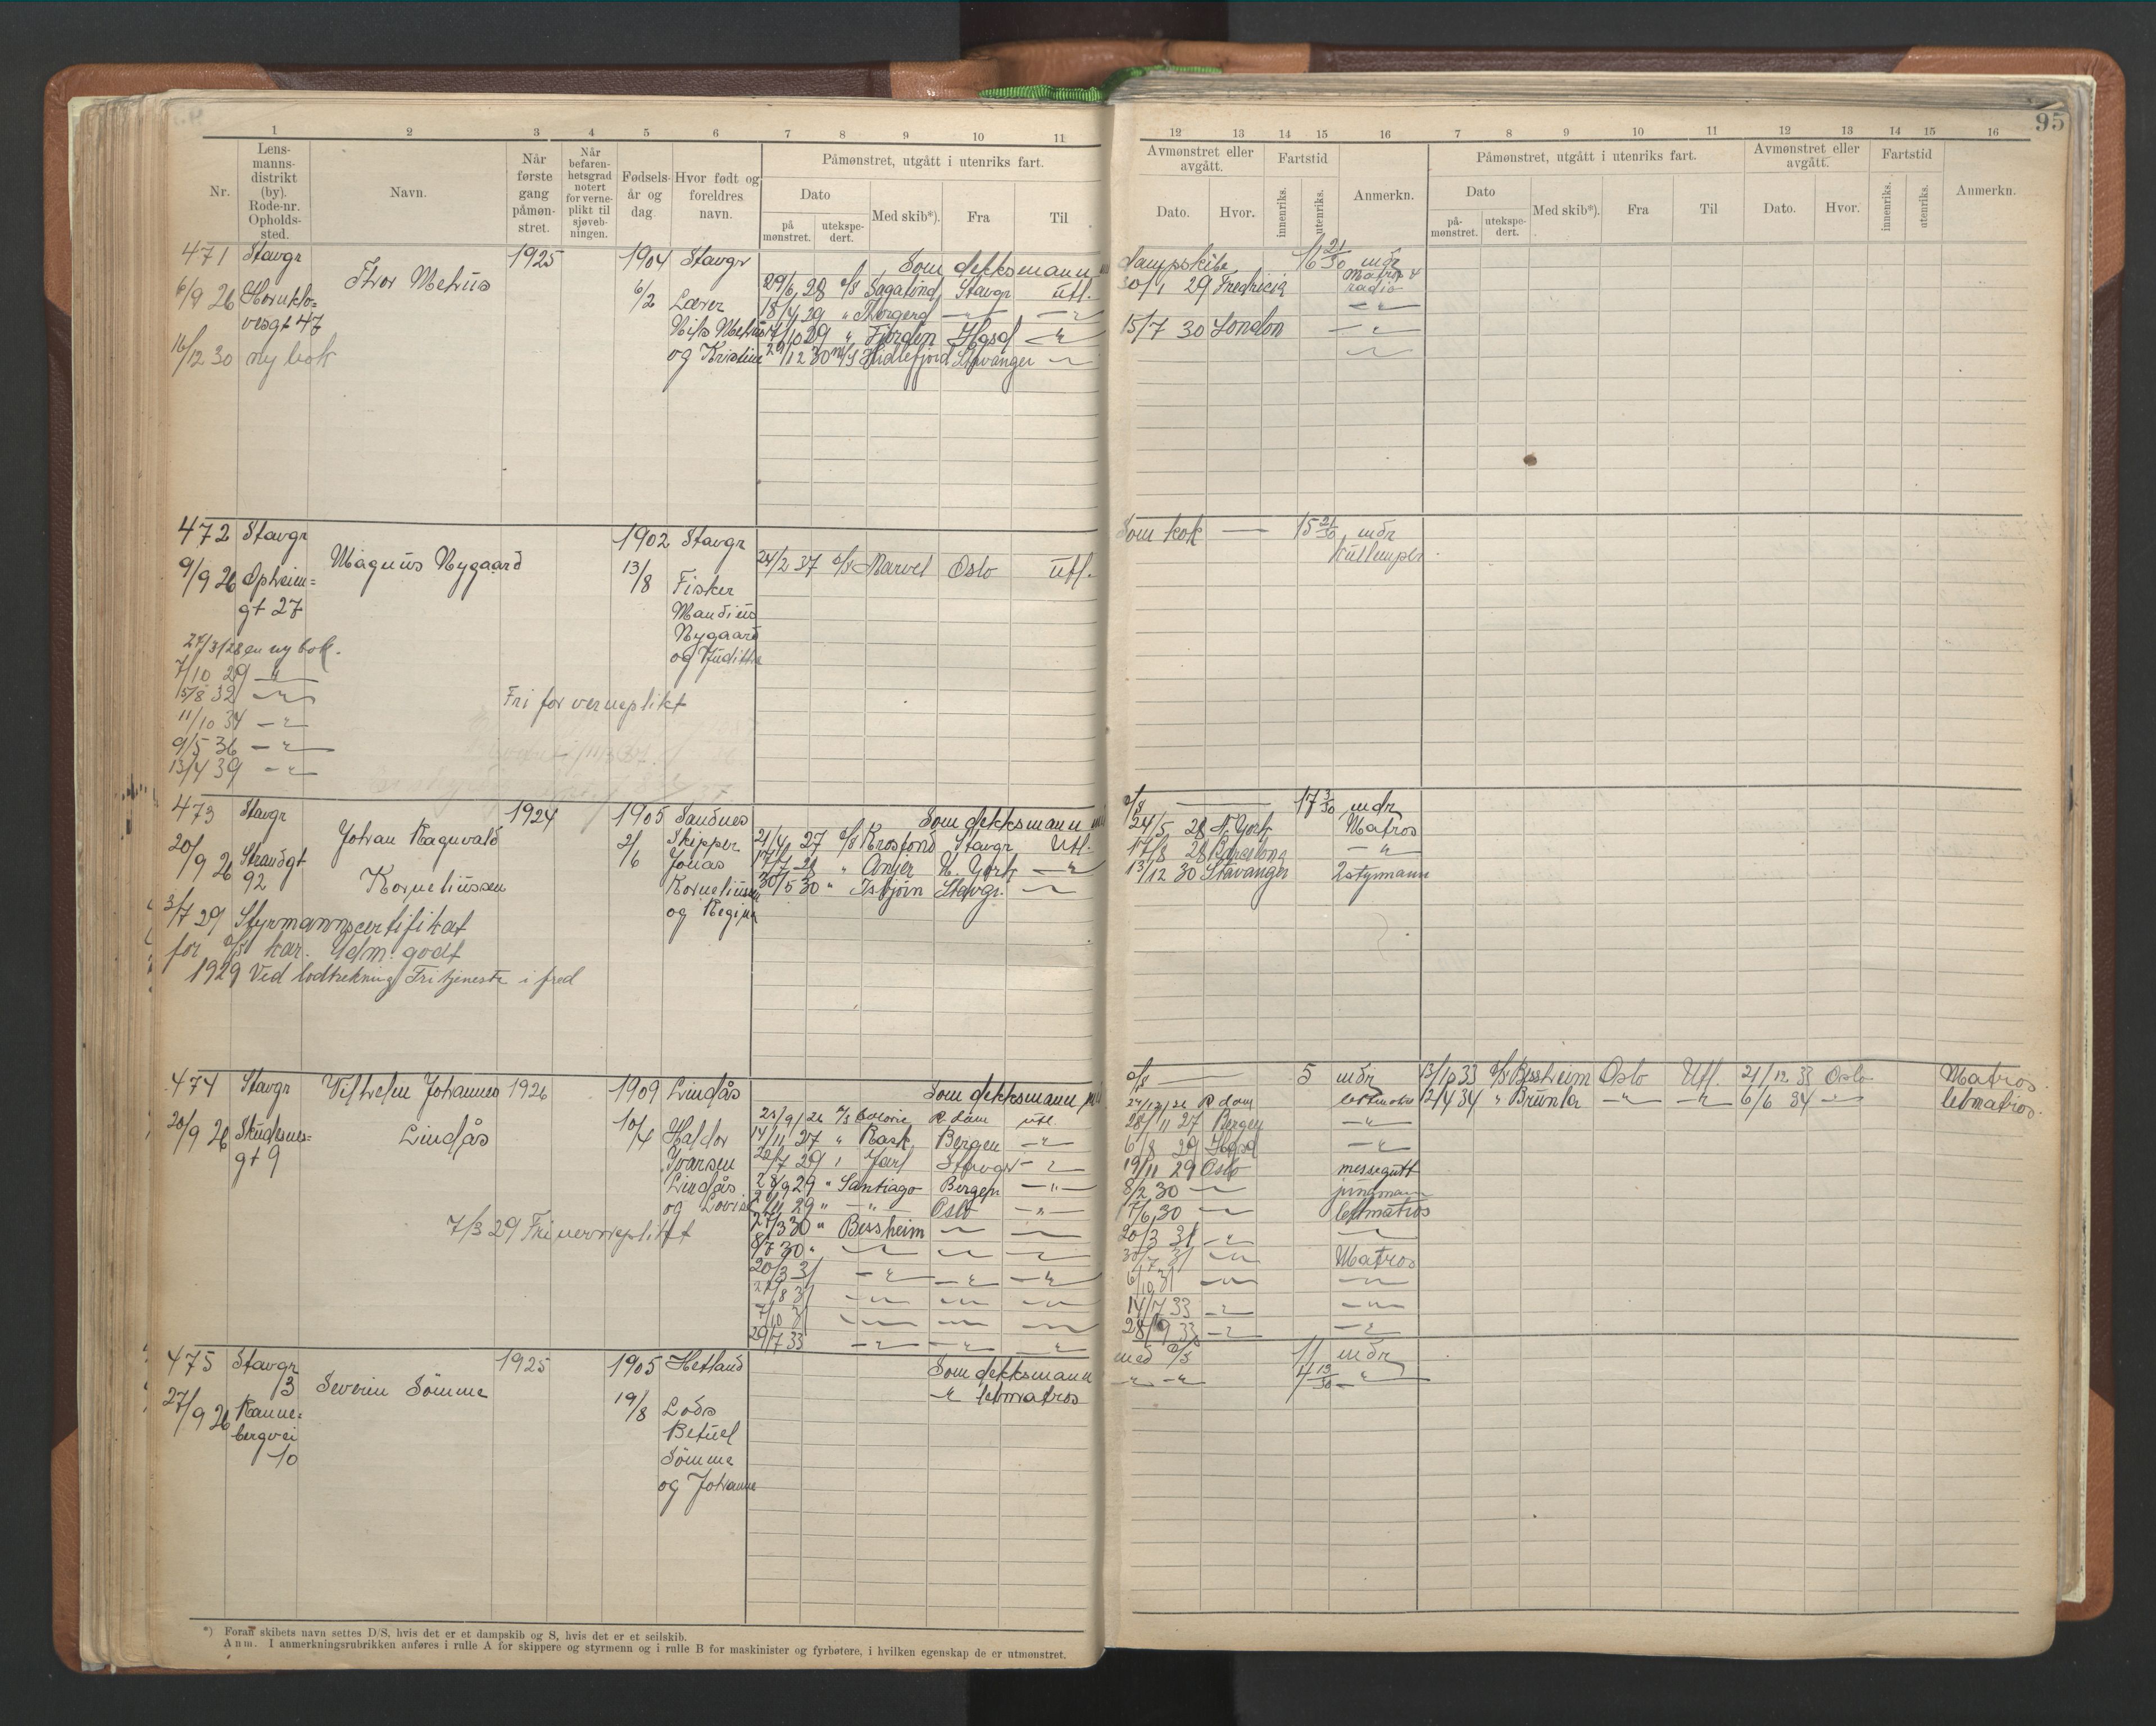 95
1 2 3 4 5 6 7 8 9 10 11
12 13 14 15 16 7 8 9 10 11 12 13 14 15 16
Nr.
Lens-
manns-
distrikt
(by).
Rode-nr.
Opholds-
sted.
Navn.
Når
første
gang
påmøn-
stret.
Når
befaren-
hetsgrad
notert
for verne-
plikt til
sjøveb-
ningen.
Fødsels-
år og
dag.
Hvor født og
foreldres
navn.
Påmønstret, utgått i utenriks fart.
Dato
på
mønstret.
utekspe-
dert.
Med skib*).
Fra
Til
Avmønstret eller
avgått.
Dato.
Hvor.
Fartstid
innenriks.
utenriks.
Anmerkn.
Påmønstret, utgått i utenriks fart.
Dato
på-
mønstret.
utekspe-
dert.
Med skib*).
Fra
Til
Avmønstret eller
avgått.
Dato.
Hvor.
Fartstid
innenriks.
utenriks.
Anmerkn.
471 Stavgr 1925 1904 Stavgr Som dekksmann dampskibe 16 21/30 mdr
Thor Mehus
6/9 26 Hornklo= 6/2 Lærer 29/6 28 d/s Sagatind Stavgr Utl. 30/1 29 Fredricia Matros radio
vesgt 47 Nils Mehus 18/4 29 " Thorgerd
og Kristine 29 " Fjorden Hgsd 15/7 30 London
16/12 30 ny bok 29/12 30 m/s Hidlefjord Stavanger
472 Stavgr 1902 Stavgr Som kok — 15 mdr
Magnus Nygaard
9/9 26 Opheim= 13/8 Fisker 24/2 37 d/s Marvel Oslo Utl.
gt 27 Mandius
Nygaard
27/3/28 en ny bok. og Juditha
7/10 29 — " —
15/8 32 — " —
Fri for verneplikt
11/10 34 — " —
9/5 36 — " —
13/4 39 — " —
473 Stavgr 1924 1905 Sandnes Som dekksmann d/s — 17 3/30 mdr
Johan Ragnvald
Korneliussen
20/9 26 Strandgt 2/6 Skipper 21/4 27 d/s Krosfond Stavgr Utl. 24/5 28 N. York Matros
92 Jonas 17/7 28 " Anjer N. York — " — 17/8 28 Barcelona — " —
Korneliussen 30/5 30 " Isbjørn Stavgr. — 13/12 30 Stavanger 2styrmann
og Regina
3/7 29 Styrmannscertifikat
for d/s kar. Udm. godt
1929 Ved lodtrekning Fri tjeneste i fred
474 Stavgr Vilhelm Johannes 1926 1909 Lindås Som dekksmann d/s — 5 mdr 13/10 33 d/s Bessheim Oslo Utl. 21/12 33 Oslo Matros.
Lindås
20/9 26 Skudenes= 10/4 Haldor R.dam utl. R.dam 12/4 34 " Brunla — " — 6/6 34 — letmatros.
gt 9 Ivarsen 14/11 27 " Rask Bergen — " — 28/11 27 Bergen — " —
Lindås 20/7 29 " Jarl Stavgr — " — 6/8 29 Hgsd — " —
og Lovise 28/9 29 " Santiago Bergen — " — 19/11 29 Oslo messegutt
29 " — " — Oslo — " — 8/2 30 — jungmann
7/3 29 Fri verneplikt 27/3 30 " Bessheim — 17/6 30 — letmatros
8/7 30 " — 20/3 31 — " —
20/3 31 — " — 30/7 31 — Matros
27/8 31 — " — 6/10 31 — " —
7/10 31 — " — 14/7 33 — " —
29/7 33 — " — 28/9 33 — " —
475 Stavgr 1925 1905 Hetland Som dekksmann med d/s 11 mdr
13 Severin Sömme — " letmatros — " — 4 13/30 — " —
27/9 26 Ranne= 19/8 Lods
bergvei Betuel
10 Sömme
og Johanne
*) Foran skibets navn settes D/S, hvis det er et dampskib og S, hvis det er et seilskib.
Anm. I anmerkningsrubrikken anføres i rulle A for skippere og styrmenn og i rulle B for maskinister og fyrbøtere, i hvilken egenskap de er utmønstret.